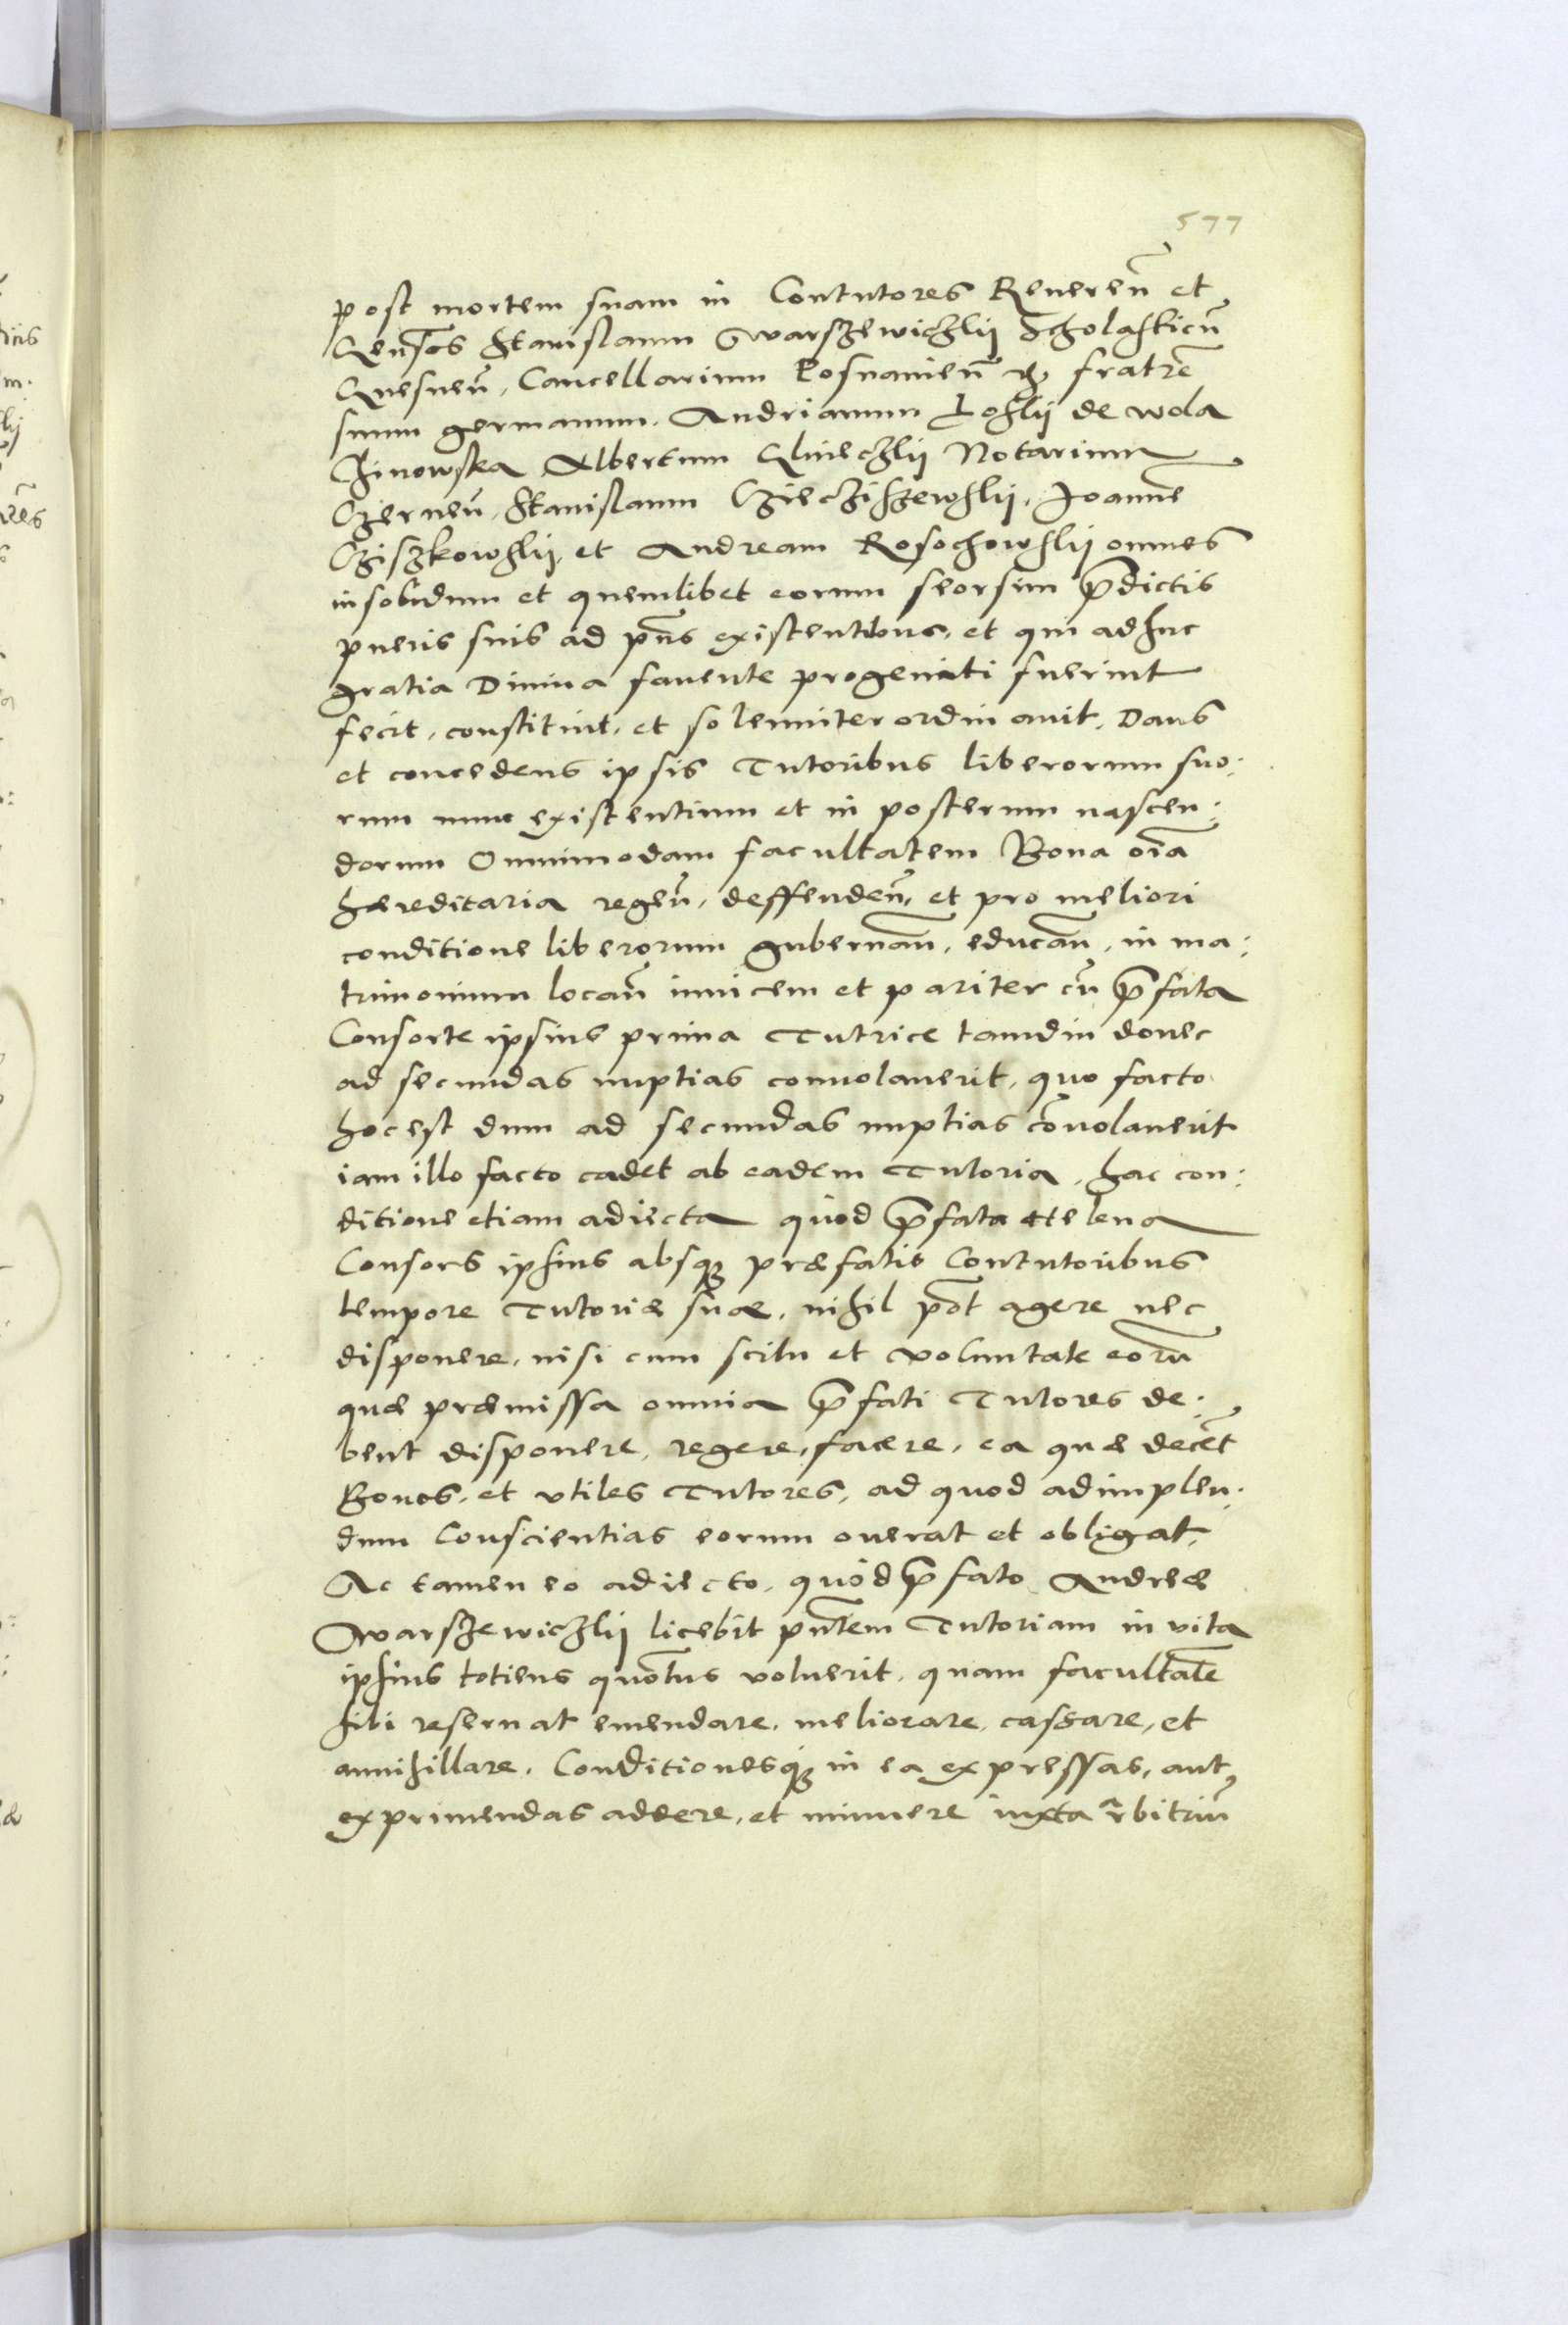 577
post mortem suam in Contutores Reveren͠ et
Gen͠sos Stanislaum Warszewiczkij Scholasticu͠
Gnesnen͠, Cancellarium Posnanien͠ etc. fratre͠
suum germanum. Andrianum Loskij de Wola
Chinowska Albertum Glineczkij Notarium
Czernen͠, Stanislaum Czieczissewskij, Joanne͠
Cziszkowskij, et Andream Rosochowskij omnes
insolidum et quemlibet eorum seorsim p͠dictis
pueris suis ad p͠ns existentibus, et qui adhuc
gratia Divina favente progeniti fuerint
fecit, constituit, et solenniter ordinavit, Dans
et concedens ipsis Tutoribus liberorum suo:
rum nunc existentium et in posterum nascen:
dorum Omnimodam facultatem Bona oi͠a
hæreditaria regen͠, deffenden͠, et pro meliori
conditione liberorum guberna͠n, educa͠n, in ma:
trimonium locan͠ invicem et pariter cu͠ p͠fata
Consorte ipsius prima Tutrice tamdiu donec
ad secundas nuptias convolaverit, quo facto
hoc est dum ad secundas nuptias co͠volaverit
iam illo facto cadet ab eadem Tutoria, hac con:
ditione etiam adiecta quod p͠fata Helena
Consors ipsius absq3 præfatis Contutoribus
tempore Tutoriæ suæ, nihil po͠t agere nec
disponere, nisi cum scitu et voluntate eoru͠
quæ præmissa omnia p͠fati Tutores de:
bent disponere, regere, facere, ea quæ dece͠t
Bonos, et utiles Tutores, ad quod adimplen:
dum Conscientias eorum onerat et obligat,
Ac tamen eo adiecto, quòd p͠fato Andreæ
Warszewiczkij licebit pn͠tem Tutoriam in vita
ipsius totiens quo͠tus voluerit, quam facultate͠
sibi reservat emendare, meliorare, cassare, et
annihillare, Conditionesq3 in ea expressas, aut
exprimendas addere, et minuere iuxta ͠rbitriu͠